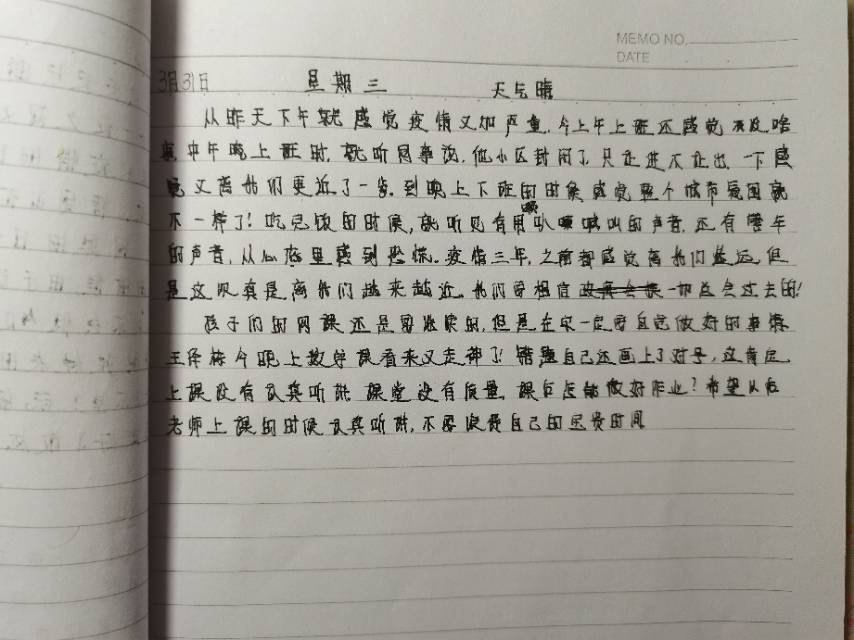 MEMO NO.
DATE
3月31日 星期三 天气晴
从昨天下午就感觉疫情又加严重,今上午上班还感觉没啥
中午晚上班时,就听同事说,他小区封闭了,只走进不走出,一下感
觉又离我们更近了一多。到晚上下班的时候感觉整个城市氛围就
不一样了!吃完饭的时候,就听见有用喇叭喊叫的声音,还有警车
的声音,从心底里感到恐慌。疫情三年,之前都感觉离我们遥远但
是这次真是离我们越来越近。我们要相信一切总会过去的!
孩子们的网课还是要继续的,但是在家一定要自觉做好的事情
王泽今晚上数学课看来又走神了!错题自己还画上了对号,这肯定
上课没有认真听讲,课堂没有质量,课后怎能做好作业?希望从后
老师上课的时候认真听讲,不要浪费自己的宝贵时间